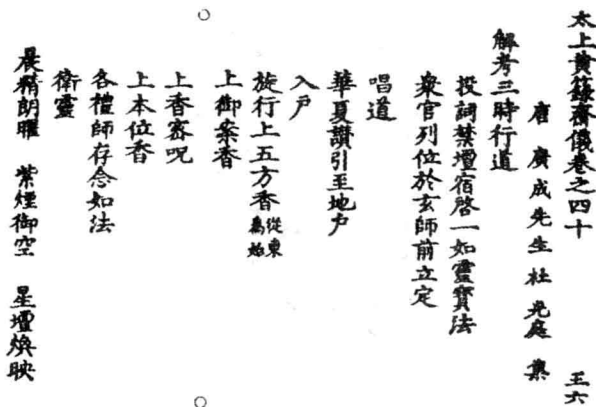 太上黃籙齋儀卷之四十 王六
唐廣成先生杜光庭集
解考三時行道
投詞禁壇宿啓一如靈寶法
衆官列位於玄師前立定
唱道
華夏讚引至地户
入户
旋行上五方香從東爲始
上御案香
上香密呪
上本位香
各禮師存念如法
衛靈
晨精朗曜 紫煙御空 星壇煥映